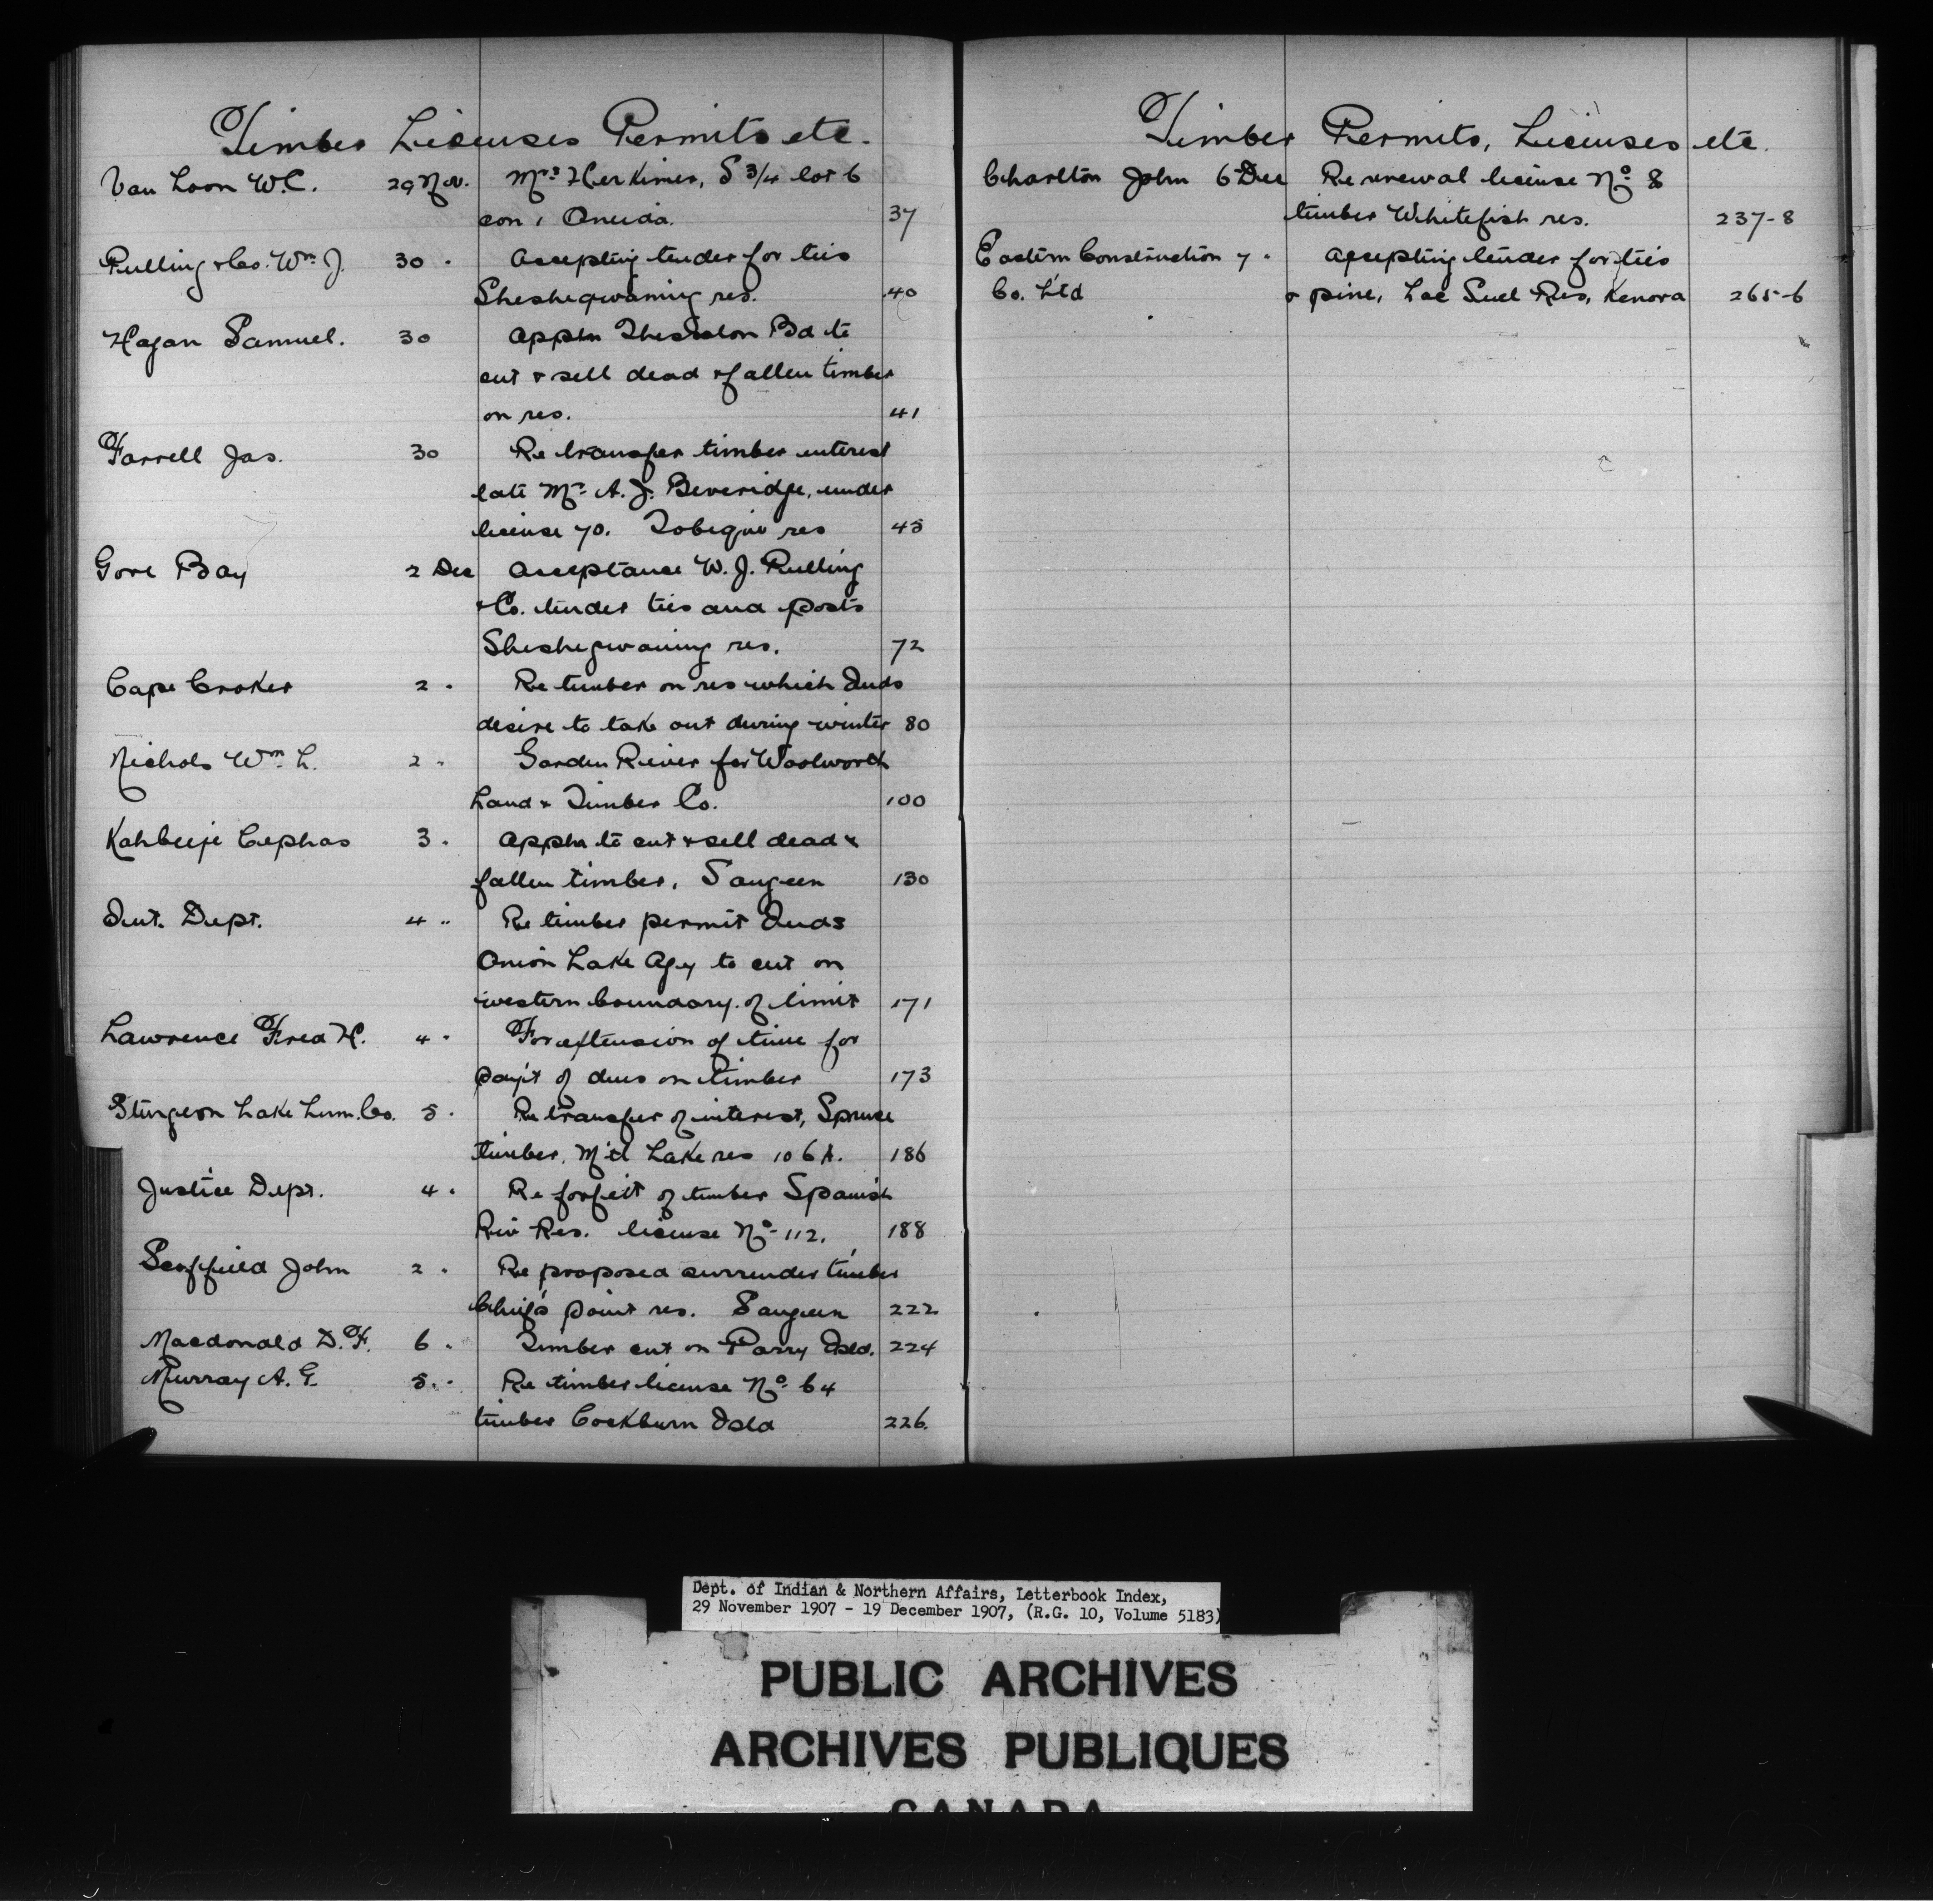 Timber Licenses Permits etc.
Van Loon W.C. 29 Nov. Mrs Herkimer, S 3/4 lot 6
con 1 Oneida. 37
Pulling & Co. Wm J. 30 " Accepting tender for ties
Sheshegwaning res. 40
Hagan Samuel. 30 Appln Thessalon Bd to
cut & sell dead & fallen timber
on res. 41
Farrell Jas. 30 Re transfer timber interest
late Mr A. J. Beveridge, under
license 70. Tobique res 45
Gore Bay 2 Dec Acceptance W. J. Pulling
& Co. tender ties and posts
Sheshegwaning res. 72
Cape Croker 2 " Re timber on res which Inds
desire to take out during winter 80
Nichols Wm L. 2 " Garden River for Woolworth
Land & Timber Co. 100
Kahbeeje Cephas 3 " Appln to cut & sell dead &
fallen timber, Saugeen 130
Int. Dept. 4 " Re timber permit Inds
Onion Lake Agy to cut on
western boundary of limit 171
Lawrence Fred H. 4 " For extension of time for
pay't of dues on timber 173
Sturgeon Lake Lum. Co. 5 " Re transfer of interest, Spruce
timber, M'tl Lake res 106A. 186
Justice Dept. 4 " Re forfeit of timber Spanish
Riv Res. license No 112. 188
Scoffield John 2 " Re proposed surrender timber
Chief's point res. Saugeen 222
Macdonald D. F. 6 " Timber cut on Parry Isld. 224
Murray A. G. 5 " Re timber license No 64
timber Cockburn Isld 226.
Timber Permits, Licenses etc.
Charlton John 6 Dec Re renewal license No 8
timber Whitefish res. 237-8
Eastern Construction 7 " Accepting tender for ties
Co. Ltd & pine, Lac Suel Res, Kenora 265-6
Dept. of Indian & Northern Affairs, Letterbook Index,
29 November 1907 - 19 December 1907, (R.G. 10, Volume 5183)
PUBLIC ARCHIVES
ARCHIVES PUBLIQUES
CANADA